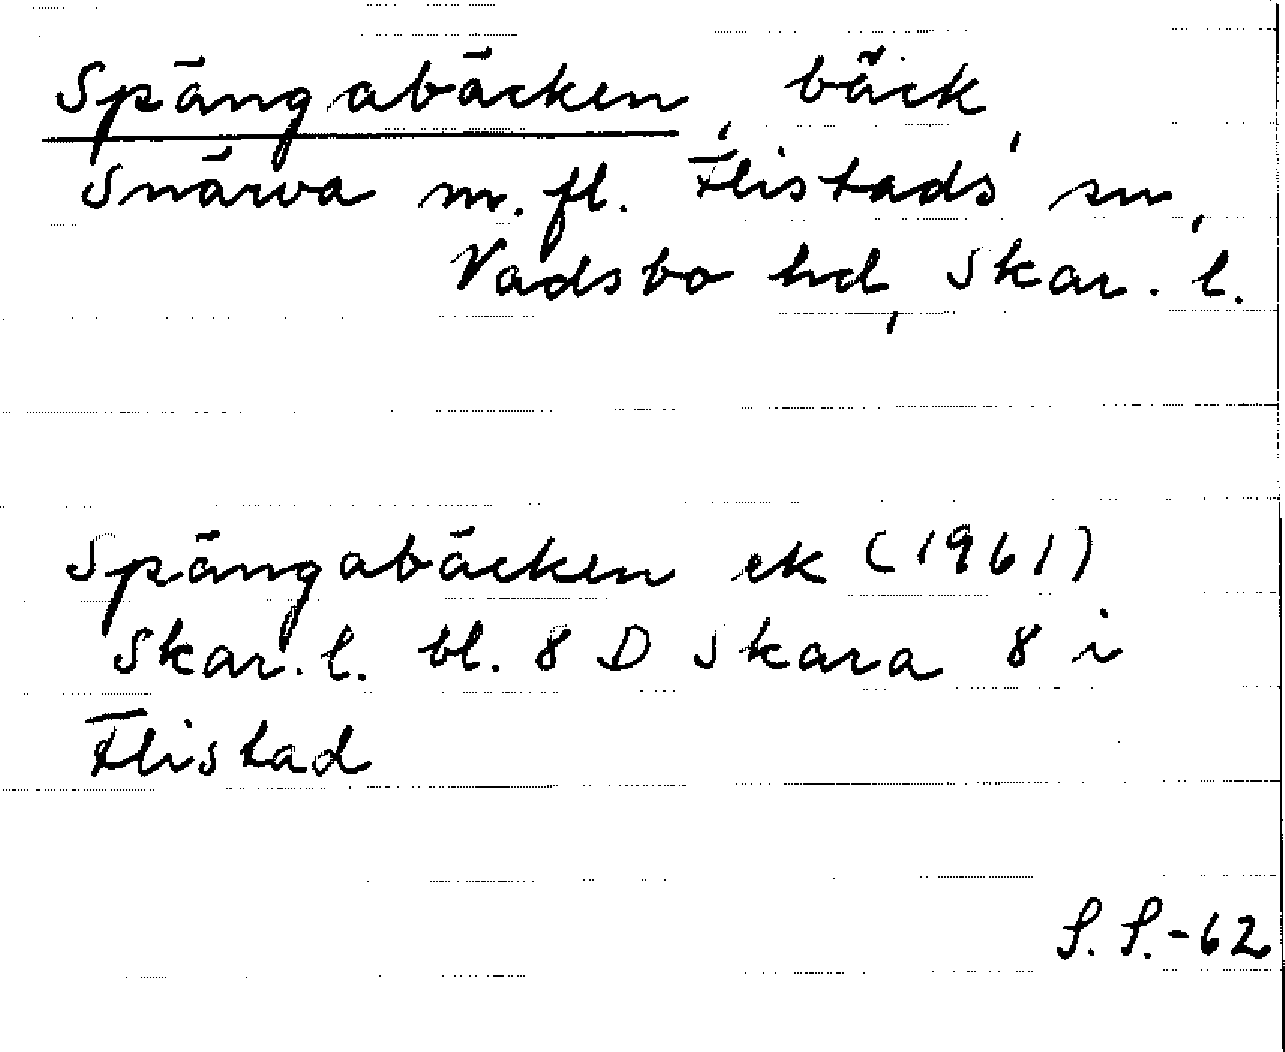 Spängabäcken, bäck,
Snärva m. fl. Flistads sn,
Vadsbo hd, Skar. l.
Spängabäcken ek (1961)
Skar. l. bl. 8 D Skara 8 i
Flistad
S. S.-62